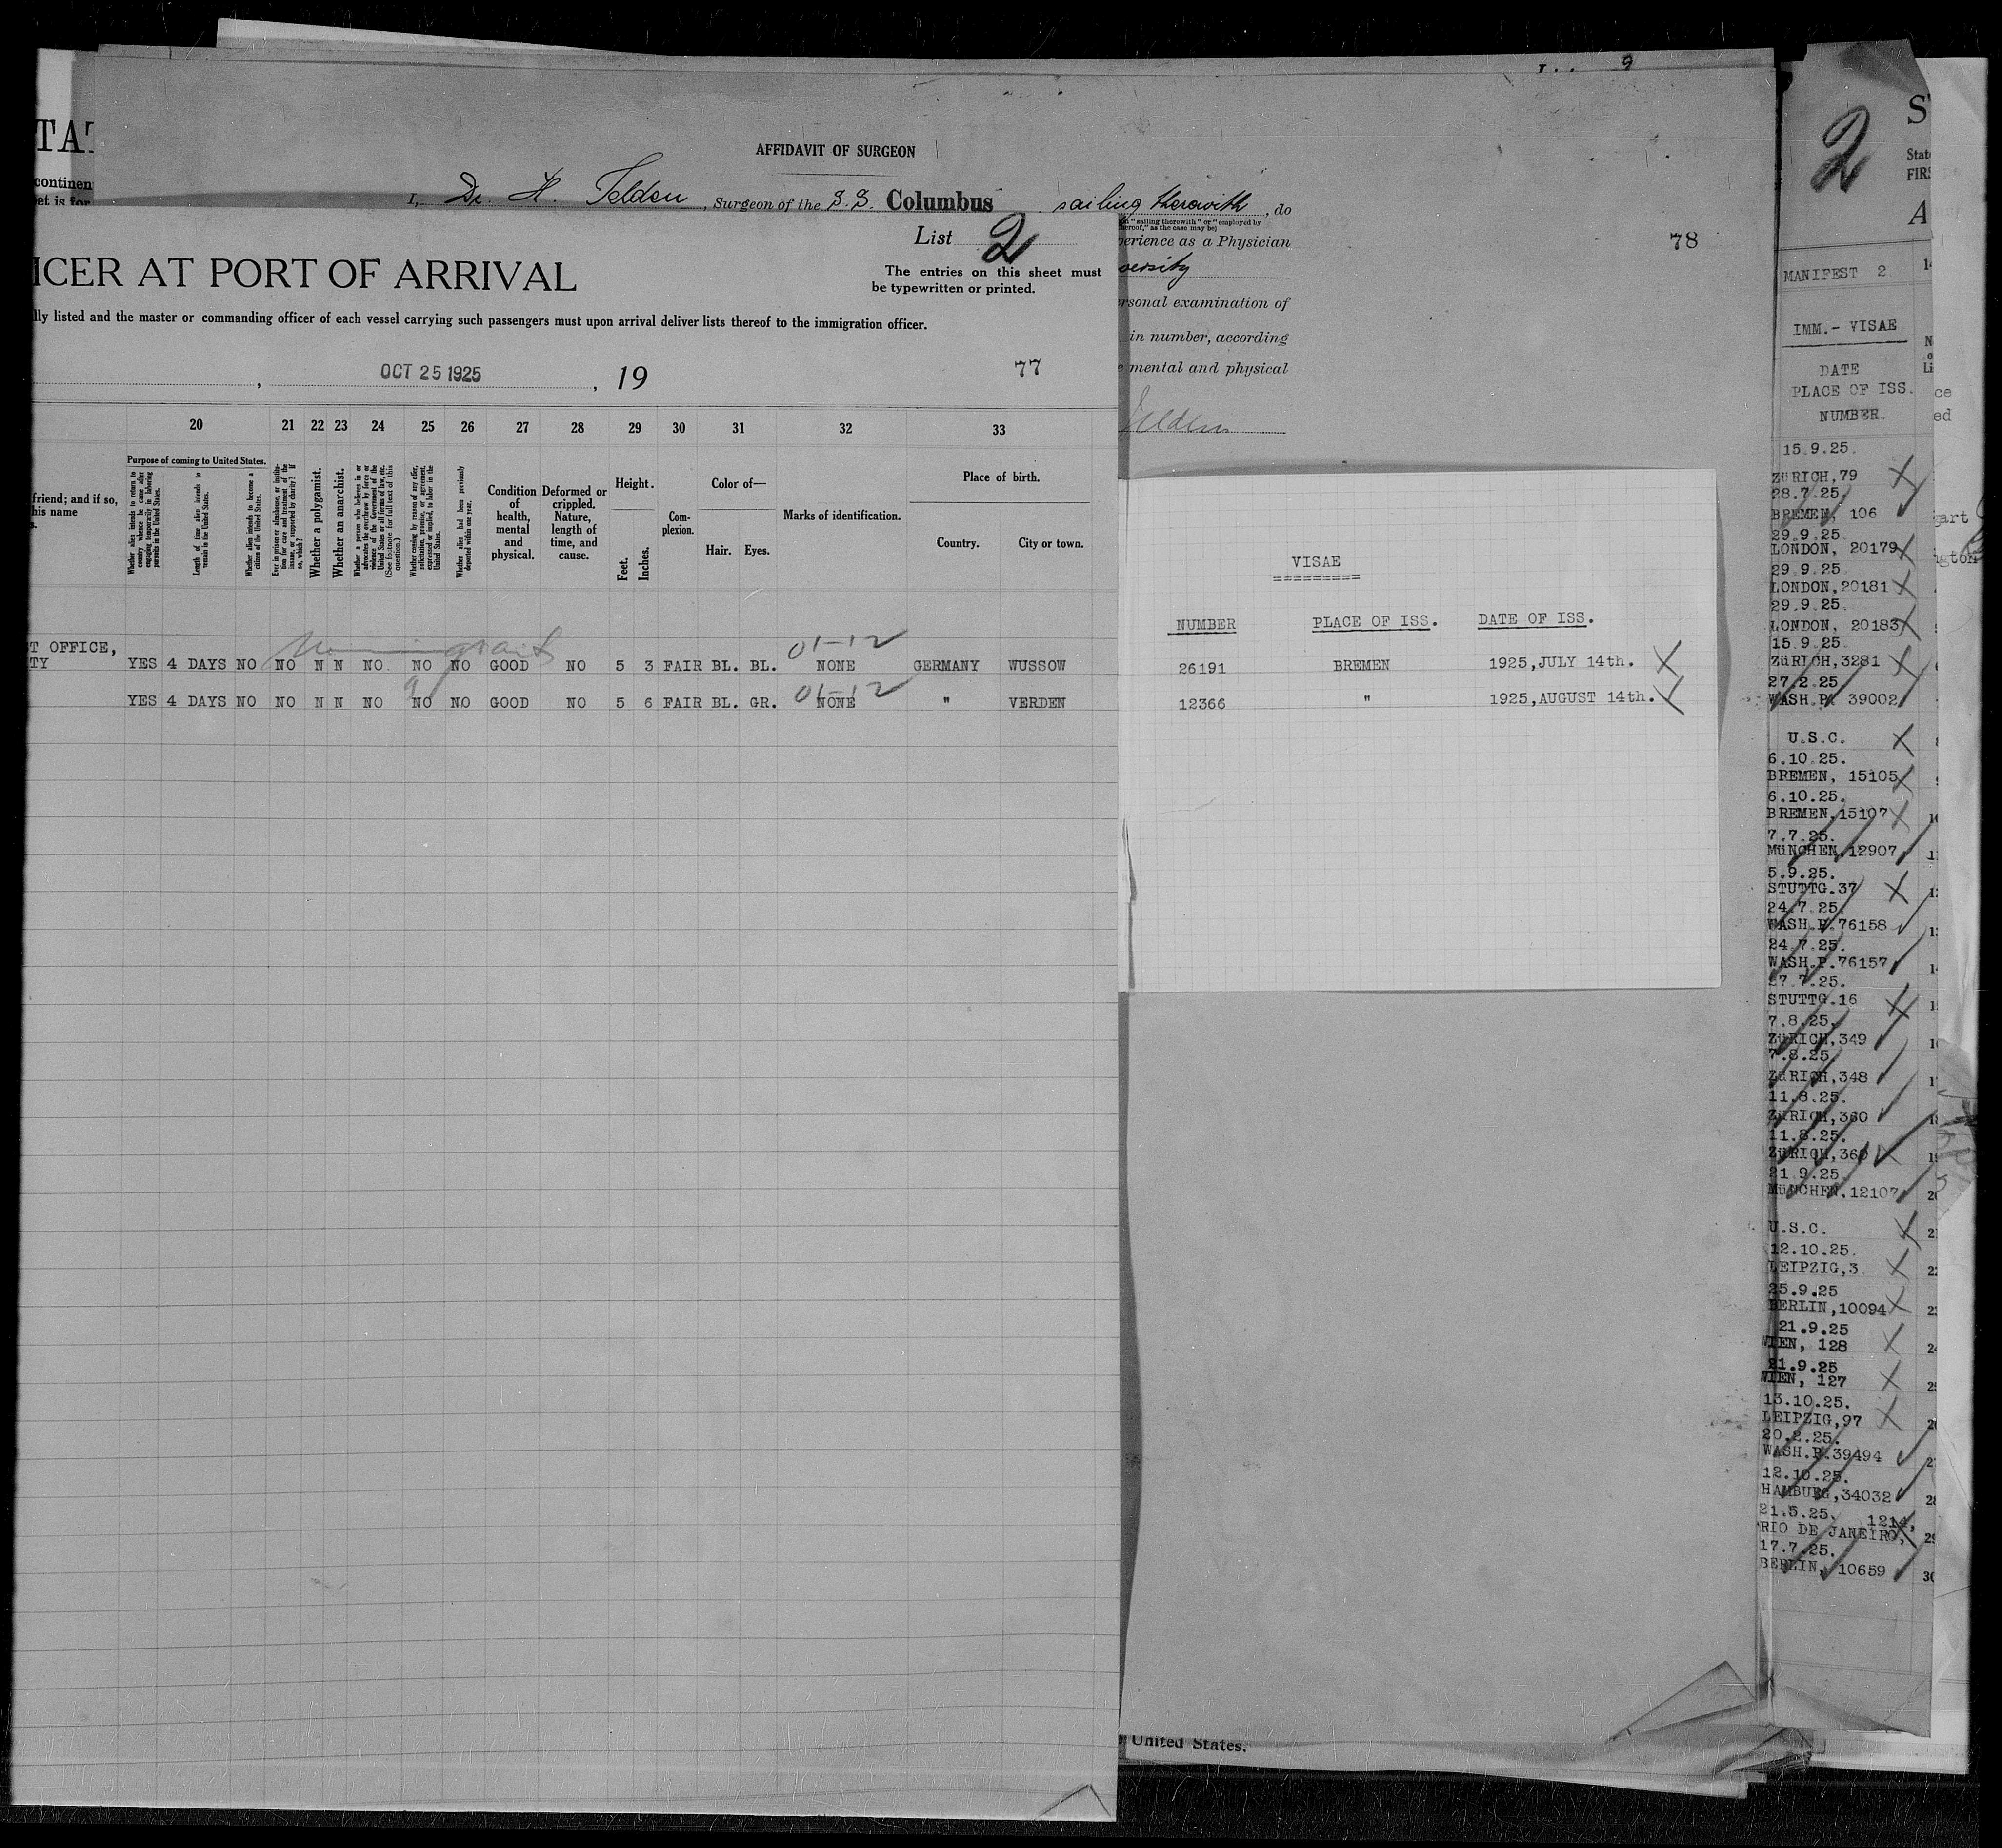 TAT
continen
et is for
AFFIDAVIT OF SURGEON
I, Dr. H. Felden, Surgeon of the S.S. Columbus sailing therewith, do
"sailing therewith" or "employed by
hereof," as the case may be)
perience as a Physician
versity
rsonal examination of
in number, according
e mental and physical
Felden
78
List 2
ICER AT PORT OF ARRIVAL
The entries on this sheet must
be typewritten or printed.
lly listed and the master or commanding officer of each vessel carrying such passengers must upon arrival deliver lists thereof to the immigration officer.
, OCT 25 1925, 19
77
20 21 22 23 24 25 26 27 28 29 30 31 32 33
friend; and if so,
his name
s.
Purpose of coming to United States.
Whether alien intends to return to country whence he came after engaging temporarily in laboring pursuits in the United States.
Length of time alien intends to remain in the United States.
Whether alien intends to become a citizen of the United States.
Ever in prison or almshouse, or institution for care and treatment of the insane, or supported by charity? If so, which?
Whether a polygamist.
Whether an anarchist.
Whether a person who believes in or advocates the overthrow by force or violence of the Government of the United States or all forms of law, etc. (See footnote for full text of this question.)
Whether coming by reason of any offer, solicitation, promise, or agreement, expressed or implied, to labor in the United States.
Whether alien had been previously deported within one year.
Condition of health, mental and physical.
Deformed or crippled. Nature, length of time, and cause.
Height.
Feet. Inches.
Complexion.
Color of—
Hair. Eyes.
Marks of identification.
Place of birth.
Country. City or town.
T OFFICE,
TY YES 4 DAYS NO NO N N NO. NO NO GOOD NO 5 3 FAIR BL. BL. NONE GERMANY WUSSOW
01-12
YES 4 DAYS NO NO N N NO NO NO GOOD NO 5 6 FAIR BL. GR. NONE " VERDEN
01-12
VISAE
NUMBER PLACE OF ISS. DATE OF ISS.
26191 BREMEN 1925,JULY 14th. X
12366 " 1925,AUGUST 14th. X
United States.
2
S
State
FIRS
A
MANIFEST 2
IMM.- VISAE
DATE
PLACE OF ISS.
NUMBER.
15.9.25.
ZüRICH,79
28.7.25.
BREMEN, 106
29.9.25.
LONDON, 20179
29.9.25.
LONDON,20181
29.9.25.
LONDON, 20183
15.9.25.
ZüRICH,3281
27.2.25.
WASH.P. 39002
U.S.C.
6.10.25.
BREMEN, 15105
6.10.25.
BREMEN,15107
7.7.25.
MüNCHEN,12907
5.9.25.
STUTTG.37
24.7.25.
WASH.P.76158
24.7.25.
WASH.P.76157
27.7.25.
STUTTG.16
7.8.25.
ZüRICH,349
7.8.25.
ZüRICH,348
11.8.25.
ZüRICH,360
11.8.25.
ZüRICH,360
21.9.25.
MüNCHEN,12107
U.S.C.
12.10.25.
LEIPZIG,3
25.9.25
BERLIN,10094
21.9.25
WIEN, 128
21.9.25
WIEN, 127
13.10.25.
LEIPZIG,97
20.2.25.
WASH.P.39494
12.10.25.
HAMBURG,34032
21.5.25. 1214,
RIO DE JANEIRO,
17.7.25.
BERLIN, 10659